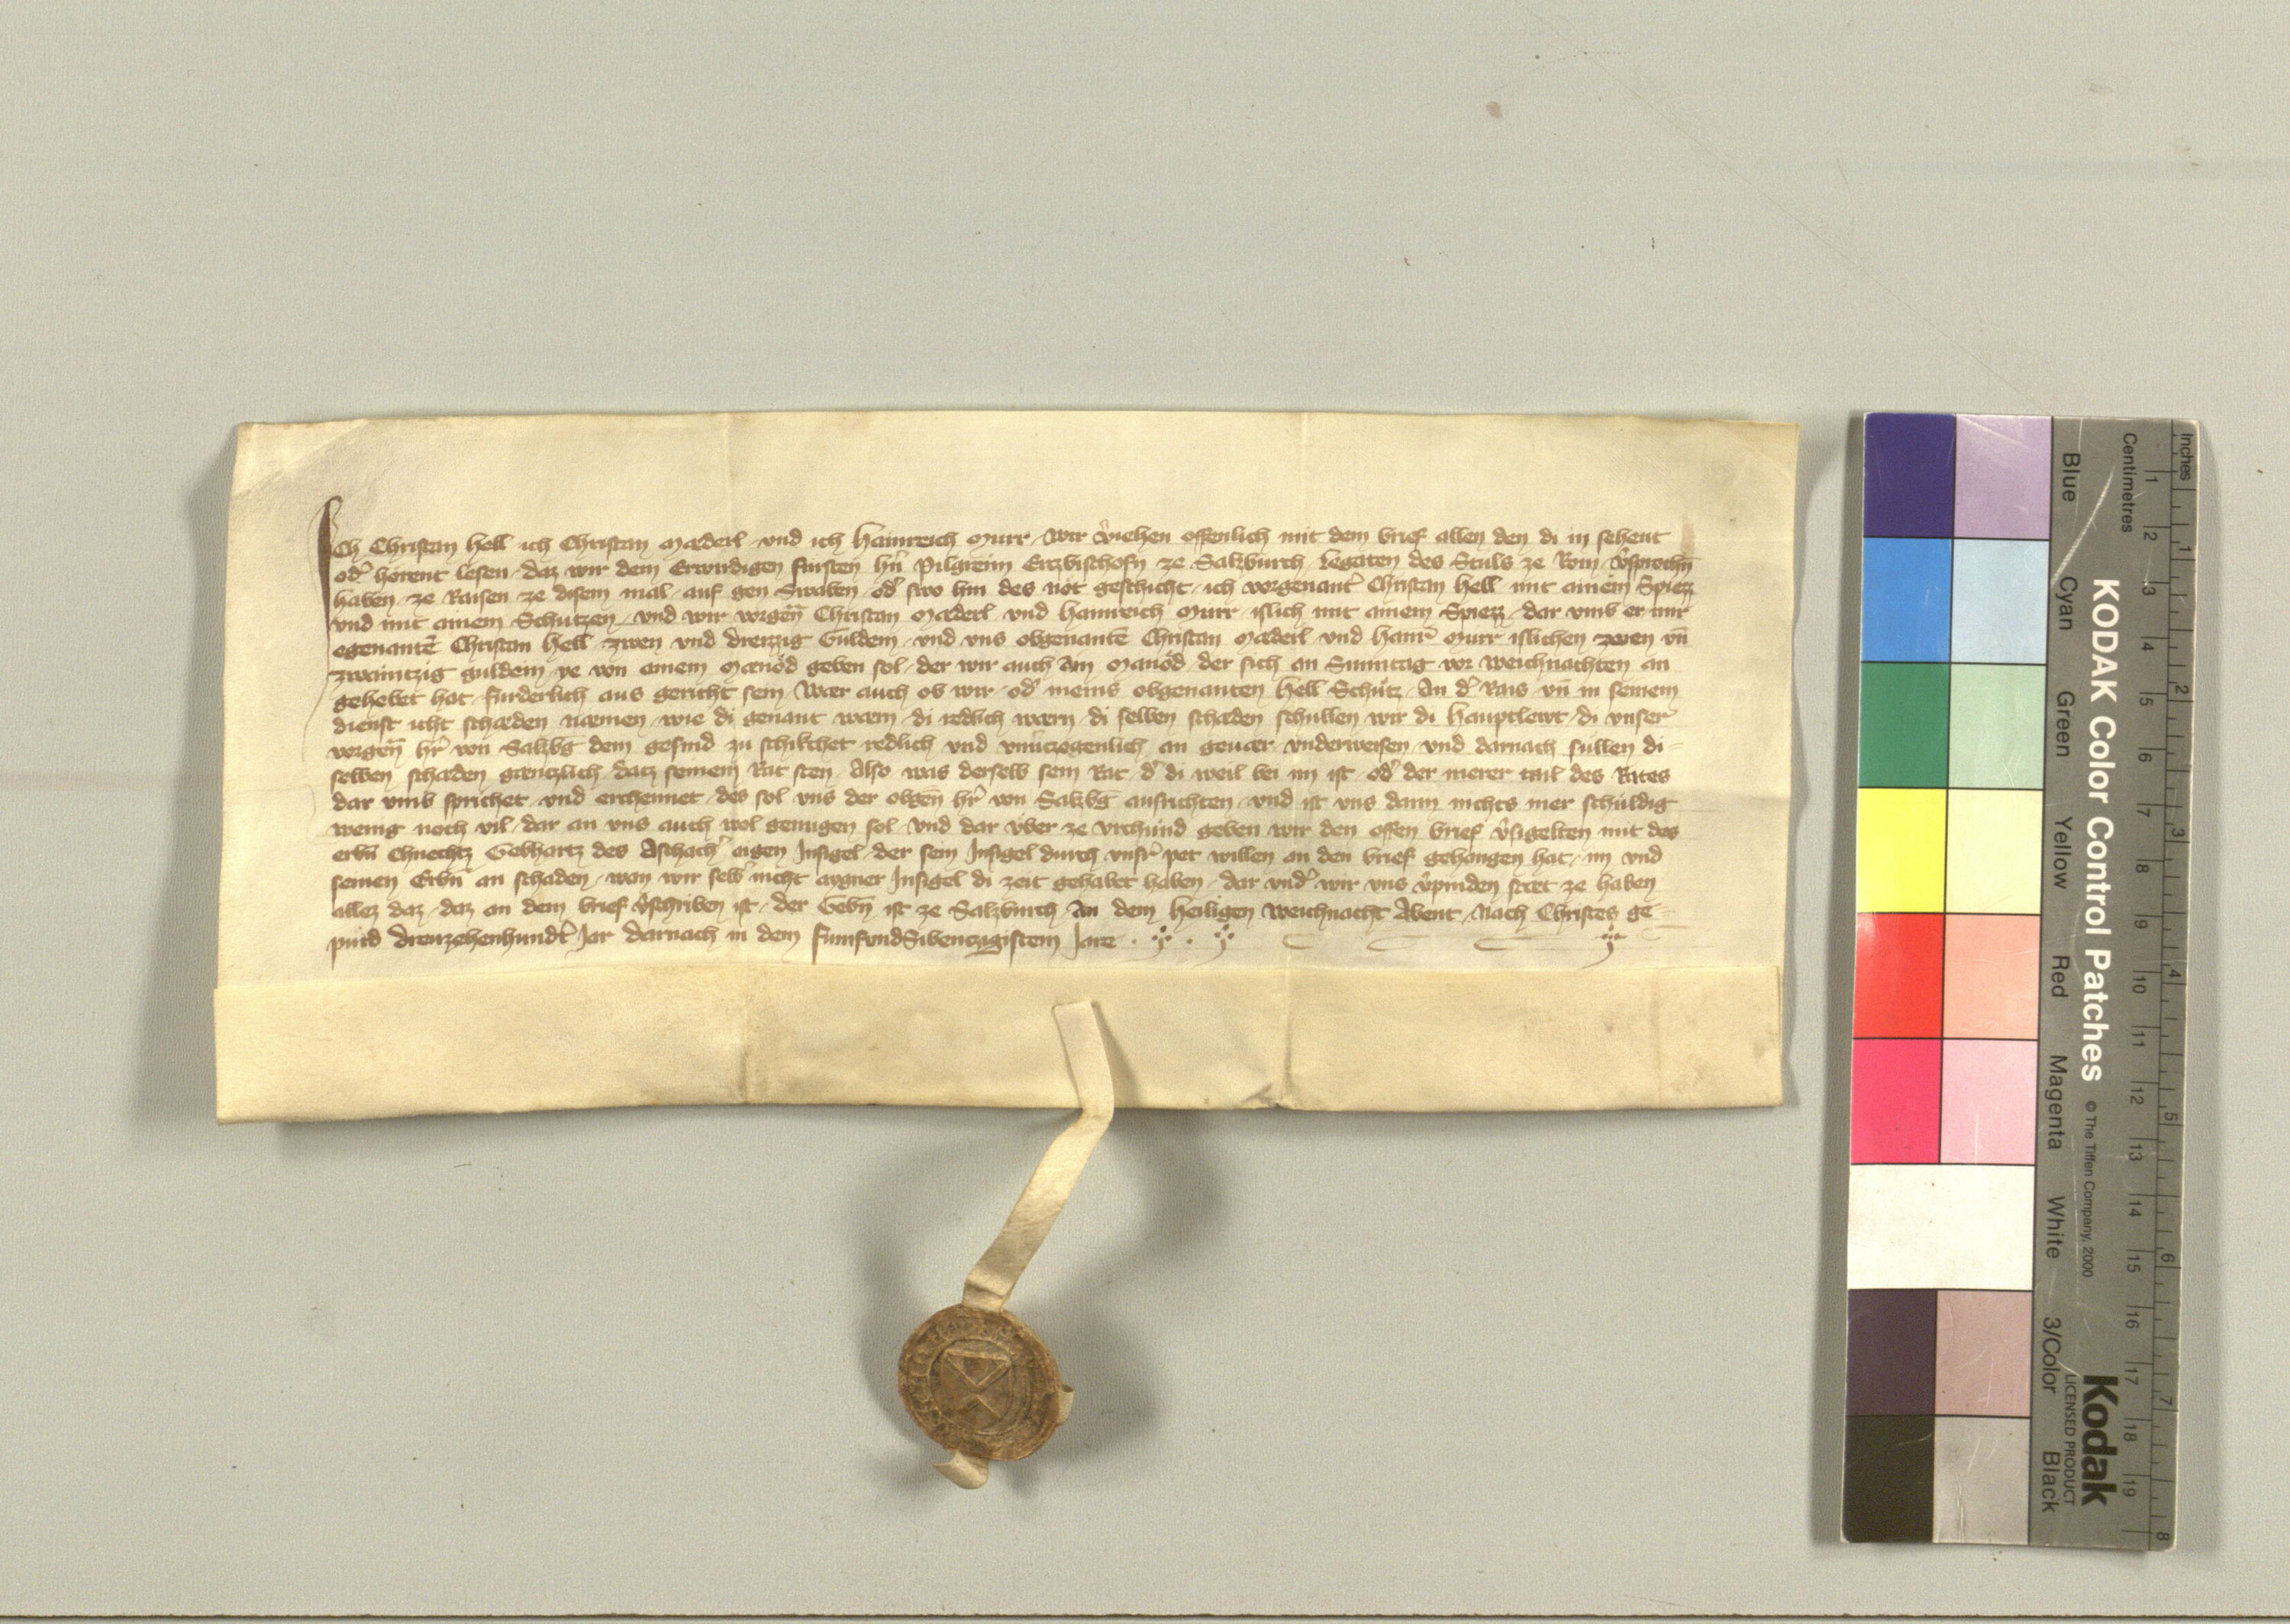 Ich Christan Hell ich Christan Maederl und ich Hainreich Murr, wir v̾iehen offenlich mit dem brief allen den di in sehent
od̾ hörent lesen, daz wir dem Erwirdigen fürsten hn̄ Pilgreim Ertzbischofn ze Salzburch Legaten des Stuls ze Rom v̾sprochn̄
haben ze Raisen ze disem mal auf gen Swaben od̾ swo hin des not geschicht, ich vorgenant̾ Christan Hell mit ainem Spiezz
und mit ainem Schutzen, und wir vorgen̄ Christan Maederl und Hainreich Murr islich mit ainem Spiezz, dar umb er mir
egenantē Christan Hell zwen und dreizzig Guldein, und uns obgenantē Christan Maederl und Hainr̄ Murr islichen zwen un̄
zwaintzig guldein ye von ainem Maenod geben sol, der wir auch Ain Manod der sich an Sunntag vor Weichnachten an
gehebet hat, furderlich aus gericht sein, Waer auch ob wir od̾ meins obgenanten Hell Schütz An d̾ Rais un̄ in seinem
dienst icht schaeden naemen, wie di genant waern di redlich waern, di selben schaeden schullen wir di Hauptlewt di unser
vorgen̄ hr̄ von Salzbg̅ dem gesind zu schikchet redlich und unu̾zogenlich an geuaer underweisen, und darnach sullen di
selben schaeden gaentzlich datz seinem Rat sten, Also was derselb sein Rat d̾ di weil bei im ist od̾ der merer tail des Rates
dar umb sprichet und erchennet, des sol uns der obgen̄ hr̄ von Salzbg̅ ausrichten, und ist uns dann nichts mer schuldig
wenig noch vil, dar an uns auch wol genugen sol, Und dar uber ze urchund geben wir den offen brief v̾sigelten mit des
erbn̄ Chnechtz Gebhartz des Aschach̾ aigen Insigel, der sein Insigel durch unsr̾ pet willen an den brief gehangen hat, im und
seinen Erbn̄ an schaden, wan wir selb nicht aygner Insigel di zeit gehabt haben, dar und̾ wir uns v̾pinden staet ze haben
allez daz, daz an dem brief v̾schriben ist, der Gebn̄ ist ze Salzburch An dem Heiligen Weichnacht Abent, Nach Christes ge-
purd Dreuzehenhundt̾ Jar darnach in dem FunfundSibentzigistem Jare
KODAK Color Control Patches
© The Tiffen Company, 2000
Kodak
LICENSED PRODUCT
Blue Cyan Green Yellow Red Magenta White 3/Color Black
Inches 1 2 3 4 5 6 7 8
Centimetres 1 2 3 4 5 6 7 8 9 10 11 12 13 14 15 16 17 18 19